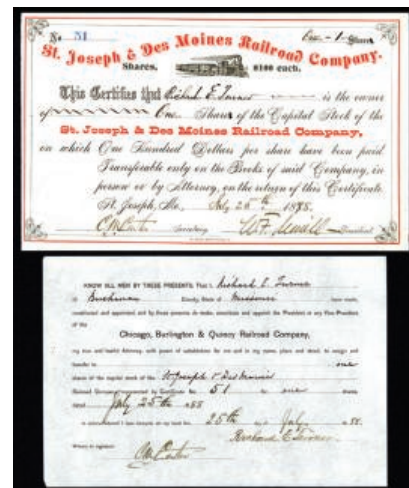 No 51 One - 1 - Share
St. Joseph & Des Moines Railroad Company.
Shares, $100 each.
This Certifies that Richard E. Turner is the owner
of One Share of the Capital Stock of the
St. Joseph & Des Moines Railroad Company,
on which One Hundred Dollars per share have been paid
Transferable only on the Books of said Company, in
person or by Attorney, on the return of this Certificate.
St. Joseph, Mo., July 25th 1888.
Secretary President
KNOW ALL MEN BY THESE PRESENTS, That I, Richard E. Turner
of Buchanan County, State of Missouri have made,
constituted and appointed and by these presents do make, constitute and appoint the President or any Vice-President
of the
Chicago, Burlington & Quincy Railroad Company,
my true and lawful Attorney, with power of substitution for me and in my name, place and stead, to assign and
transfer to one
shares of the capital stock of the St Joseph & Des Moines
Railroad Company by Certificate No. 51 for one shares,
dated July 25th 188
25th July
Richard E. Turner
Witness to signature: